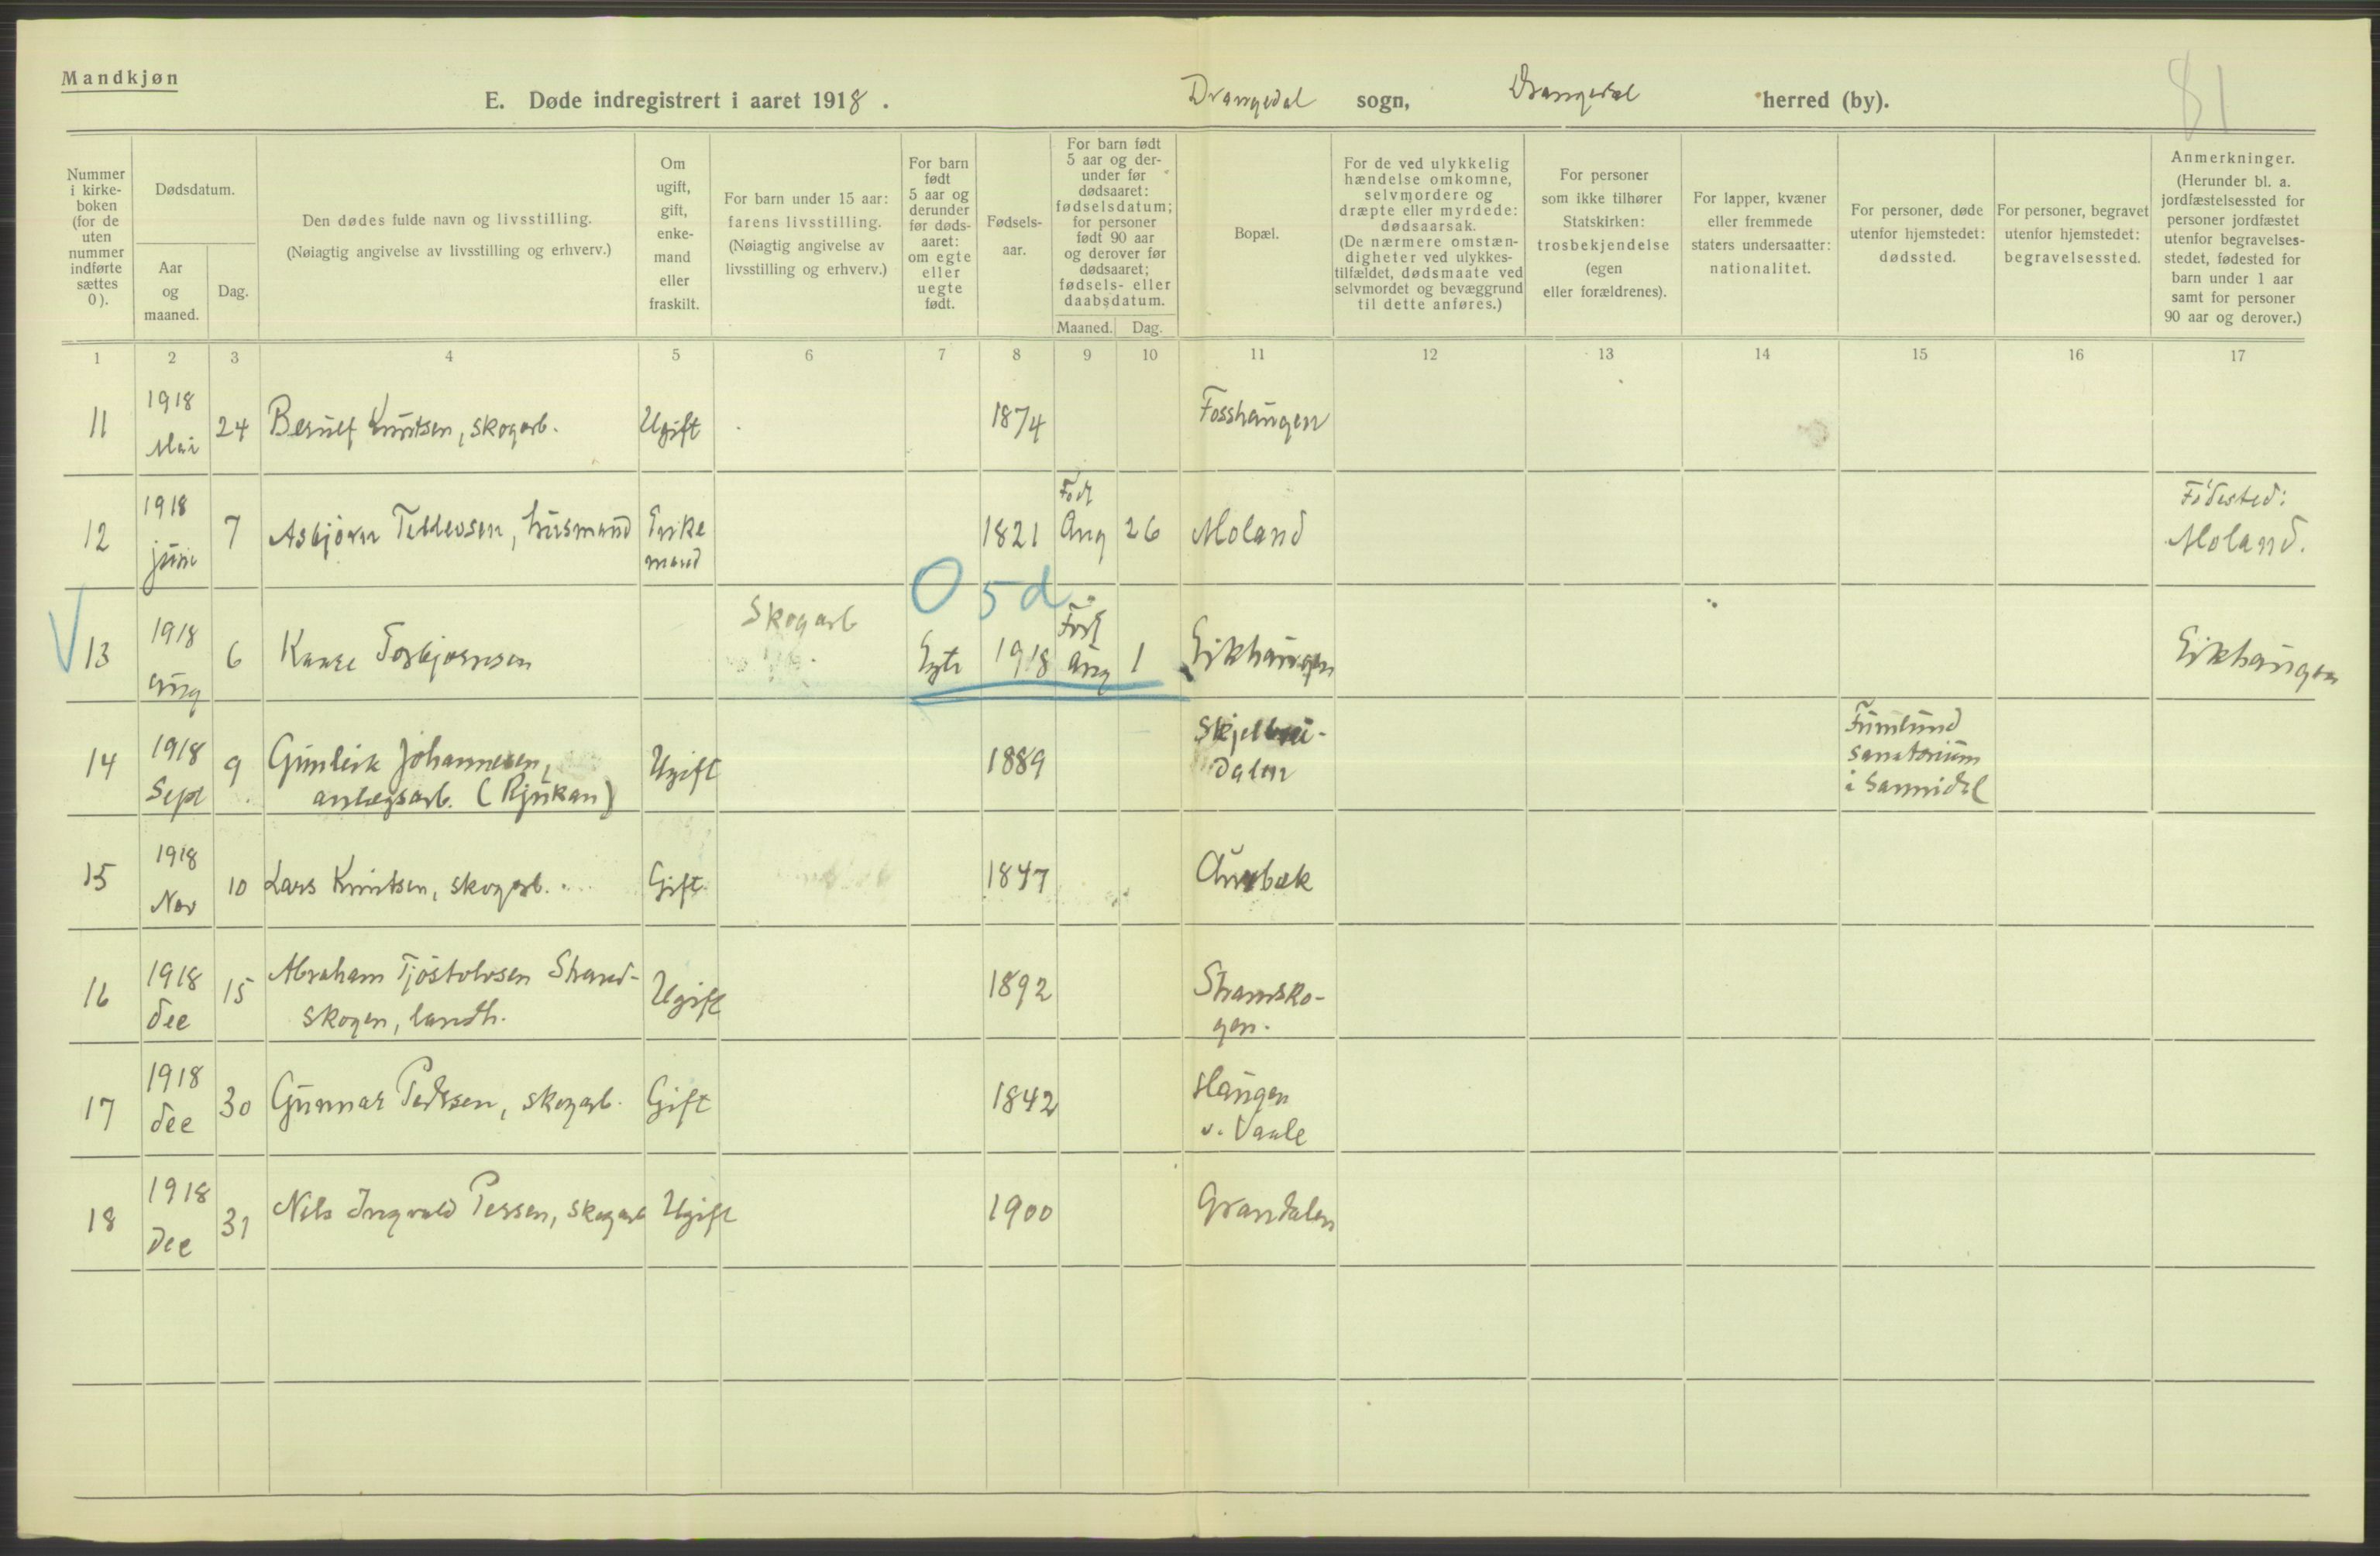 Mandkjøn
E. Døde indregistrert i aaret 1918.
Drangedal sogn, Drangedal herred (by).
81
Nummer i kirke- boken (for de uten nummer indførte sættes 0).
Dødsdatum.
Aar og maaned.
Dag.
Den dødes fulde navn og livsstilling.
(Nøiagtig angivelse av livsstilling og erhverv.)
Om ugift, gift, enke- mand eller fraskilt.
For barn under 15 aar: farens livsstilling. (Nøiagtig angivelse av livsstilling og erhverv.)
For barn født 5 aar og derunder før døds- aaret: om egte eller uegte født.
Fødsels- aar.
For barn født 5 aar og der- under før dødsaaret: fødselsdatum; for personer født 90 aar og derover før dødsaaret; fødsels- eller daabsdatum.
Maaned. Dag.
Bopæl.
For de ved ulykkelig hændelse omkomne, selvmordere og dræpte eller myrdede: dødsaarsak. (De nærmere omstæn- digheter ved ulykkes- tilfældet, dødsmaate ved selvmordet og bevæggrund til dette anføres.)
For personer som ikke tilhører Statskirken: trosbekjendelse (egen eller forældrenes).
For lapper, kvæner eller fremmede staters undersaatter: nationalitet.
For personer, døde utenfor hjemstedet: dødssted.
For personer, begravet utenfor hjemstedet: begravelsessted.
Anmerkninger. (Herunder bl. a. jordfæstelsessted for personer jordfæstet utenfor begravelses- stedet, fødested for barn under 1 aar samt for personer 90 aar og derover.)
1 2 3 4 5 6 7 8 9 10 11 12 13 14 15 16 17
11 1918 Mai 24 Berulf Knutsen, skogarb. Ugift 1874 Fosshaugen
12 1918 juni 7 Asbjørn Tellevsen, husmand Enke mand 1821 Født Aug 26 Moland Fødested: Moland.
O 5 d
13 1918 aug 6 Kaare Torbjørnsen Skogarb Egte 1918 Født aug 1 Eikhaugen Eikhaugen
14 1918 Sept 9 Gunleik Johannesen, anlægsarb. (Rjukan) Ugift 1889 Skjelbrei- dalen sanatorium i Sannidal
15 1918 Nov 10 Lars Knutsen, skogarb. Gift 1847
16 1918 dec 15 Abraham Tjøstolvsen Strand- skogen, landh. Ugift 1892 Strandsko- gen.
17 1918 dec 30 Gunnar Pedersen, skogarb. Gift 1842 Haugen v. Vaale
18 1918 Dec 31 Nils Ingvald Terssen, skogarb Ugift 1900 Grandalen